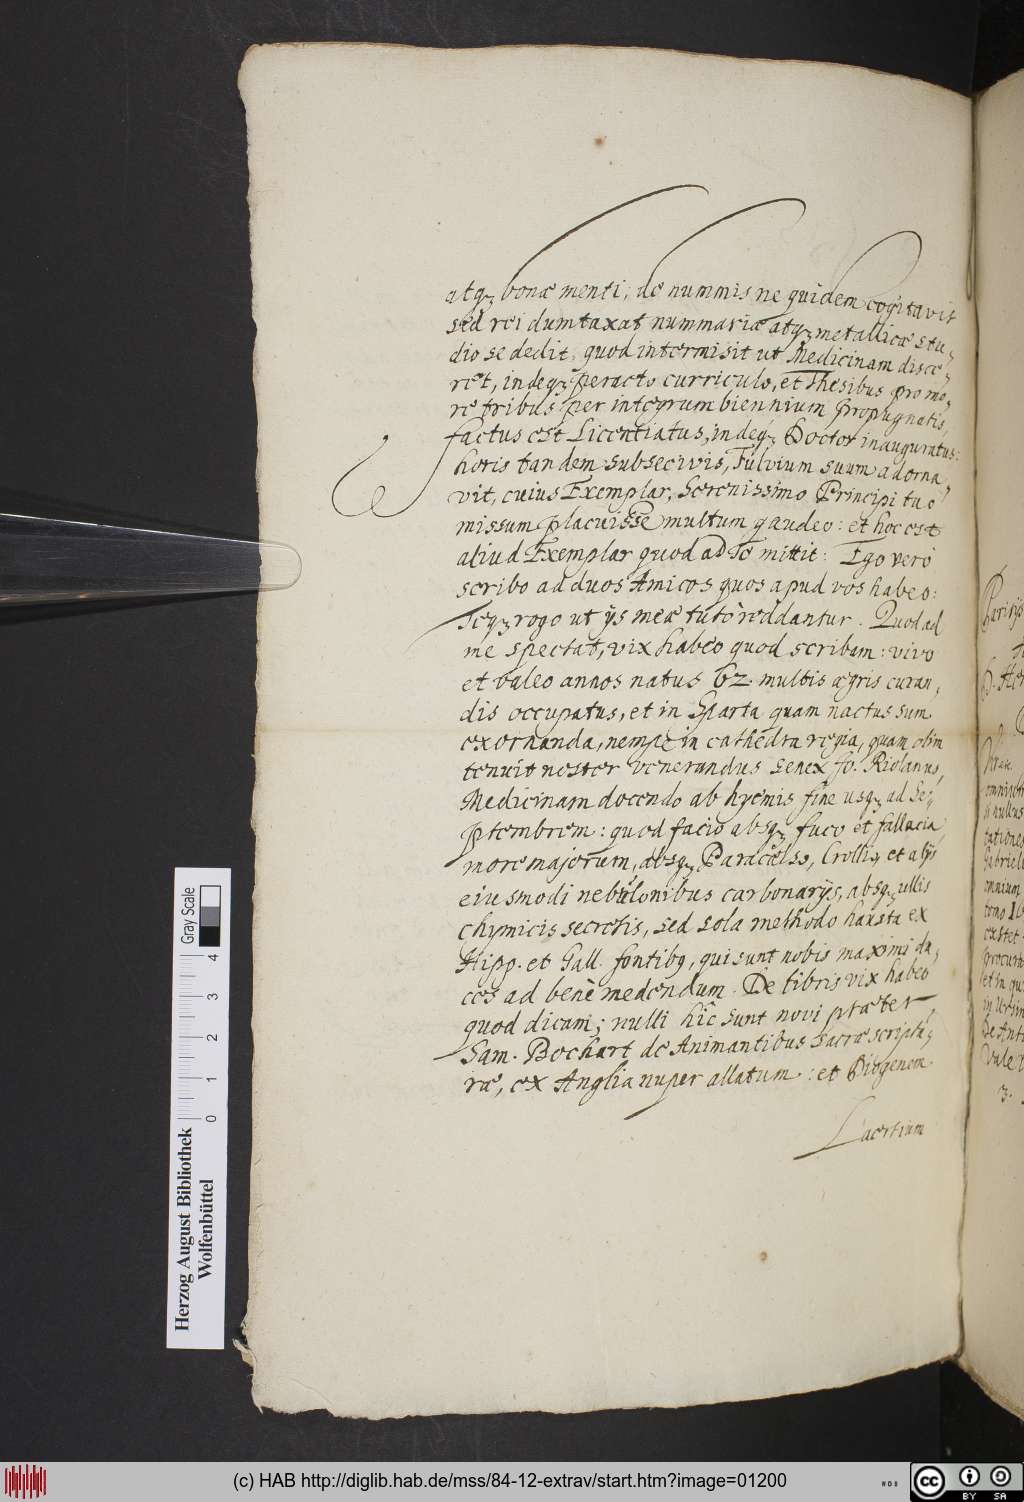 atqꝫ bonæ menti; de nummis ne quidem cogitavit
sed rei dumtaxat nummariæ atqꝫ metallicæ stu,
dio se dedit; quod intermisit ut Medicinam disce,
ret, indeqꝫ peracto curriculo, et Thesibus pro mo,
re tribus per integrum biennium propugnatis,
factus est Licentiatus, indeqꝫ Doctor inauguratus:
horis tandem subsecivis, Fulvium suum adorna,
vit, cuius Exemplar, Serenissimo Principi tuo
missum placuisse multum gaudeo: et hoc est
aliud Exemplar quod ad Te mittit: Ego verò
scribo ad duos Amicos quos apud vos habeo:
Teqꝫ rogo ut ijs meæ tutò reddantur. Quod ad
me spectat, vix habeo quod scribam: vivo
et valeo annos natus 62. multis ægris curan,
dis occupatus, et in Sparta quam nactus sum
exornanda, nempe in cathedra regia, quam olim
tenuit noster venerandus senex Jo. Riolanus,
Medicinam docendo ab hyemis fine usqꝫ ad Se,
ptembrem: quod facio absqꝫ fuco et fallacia
more majorum, absqꝫ Paracelso, Crollio, et alijs
eiusmodi nebulonibus carbonarijs, absqꝫ ullis
chymicis secretis, sed sola methodo hausta ex
Hipp. et Gall. fontibꝰ, qui sunt nobis maximi du,
ces ad benè medendum. De libris vix habeo
quod dicam; nulli hîc sunt novi præter
Sam. Bochart de Animantibus sacræ scriptu,
ræ, ex Anglia nuper allatum: et Diogenem
Laertium
Parisijs
H. Her
omnium
Gabriel
tomo
extet
procura
et in qu
Vale
Herzog August Bibliothek
Wolfenbüttel
Gray Scale
0 1 2 3 4
(c) HAB http://diglib.hab.de/mss/84-12-extrav/start.htm?image=01200
WDB
cc BY SA